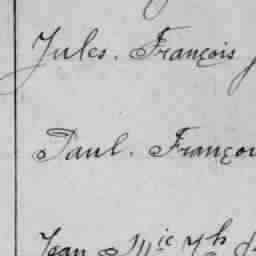 Jules. François
Paul. Françoi
Jean M^ie J^h